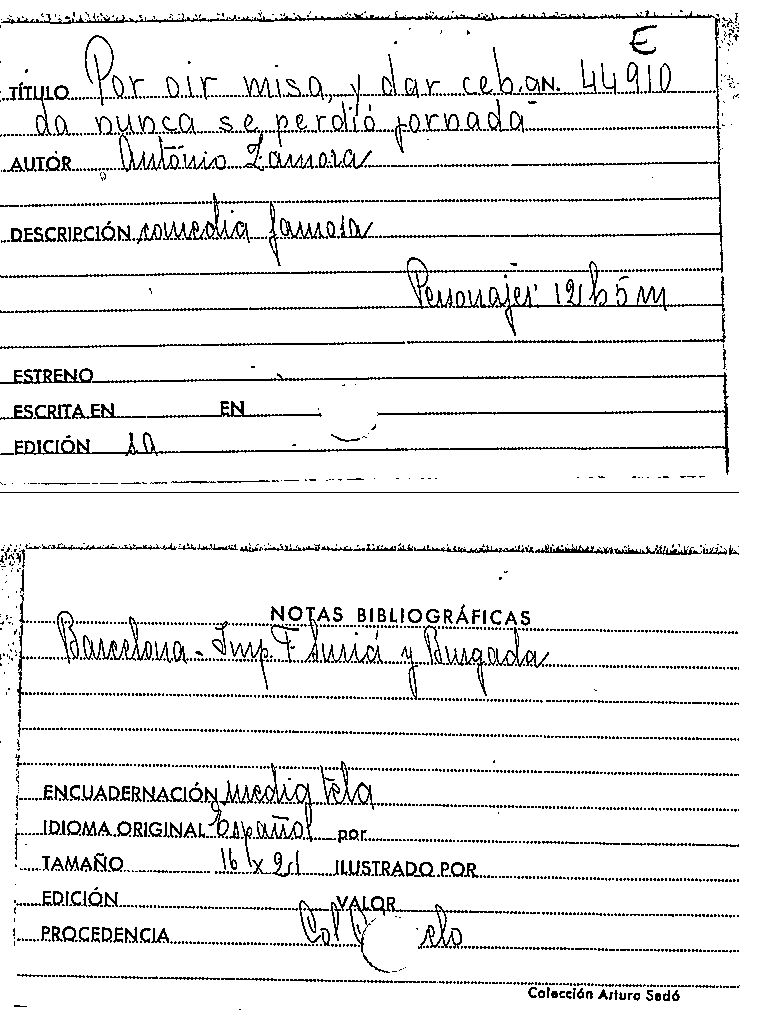 E
TÍTULO Por oir misa, y dar ceba N. 44910
da nunca se perdió jornada
AUTOR Antonio Zamora
DESCRIPCIÓN comedia famosa
Personajes 12h 5m
ESTRENO
ESCRITA EN EN
EDICIÓN sa
NOTAS BIBLIOGRÁFICAS
Barcelona - Imp. F Suriá y Burgada
ENCUADERNACIÓN media tela
IDIOMA ORIGINAL Español por
TAMAÑO 16 x 21 ILUSTRADO POR
EDICIÓN VALOR
PROCEDENCIA Col
Colección Arturo Sedó